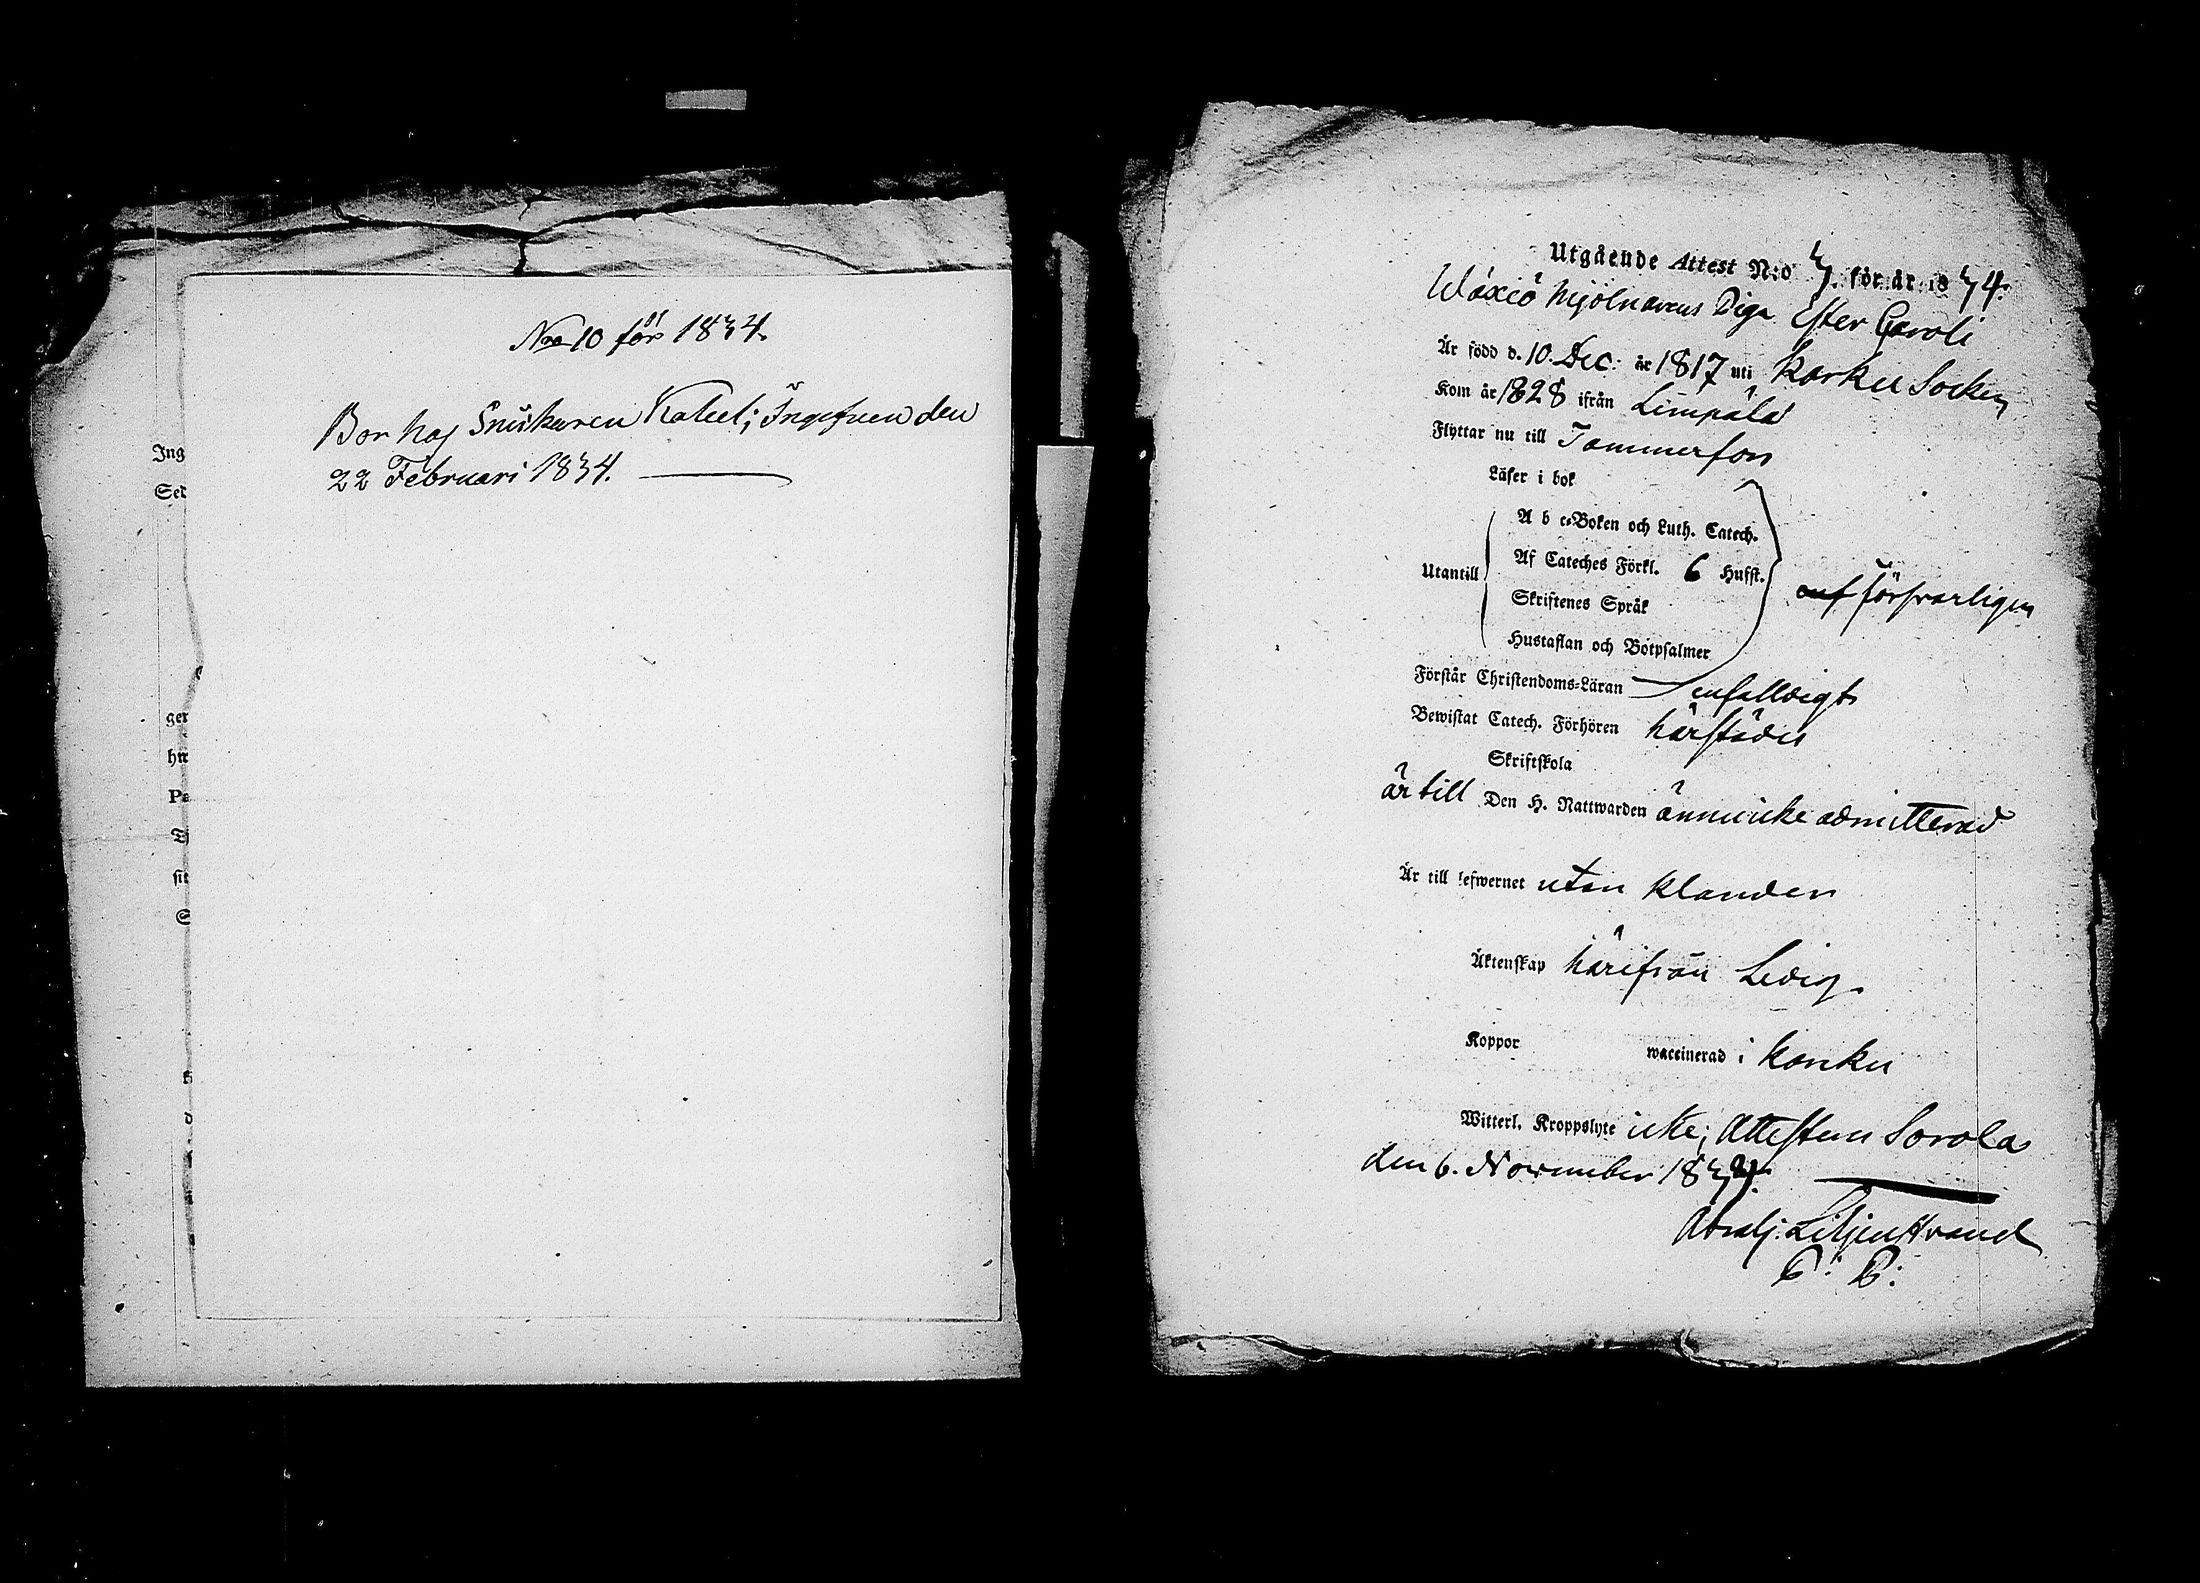 Nro 10 för 1834.
Bor hos Snickaren Kaleel; Ingifven den
22 Februari 1834.
Ing
Sed
ger
hw
Pa
sit
Utgående Attest N:o 3. för år 1834.
Wäxiö Mjölnarens Piga Ester Caroli
Är född d. 10. Dec: år 1817 uti Karku Socken
Kom år 1828 ifrån Limpälä
Flyttar nu till Tammerfors
Läser i bok
A b c-Boken och Luth. Catech.
Af Cateches Förkl. 6 Hufst.
Utantill
försvarligen
Skriftenes Språk
Hustaflan och Botpsalmer
Förstår Christendoms-Läran enfalldigt
Bewistat Catech. Förhören härstädes
Skriftskola
är till Den H. Nattwarden ännu icke admitterad
Är till lefwernet utan klander
Äktenskap härifrån Ledig.
Koppor waccinerad i Karku
Witterl. Kroppslyte icke; Attesteras Sorola
den 6. November 1834.
Abrah: Liljenstrand